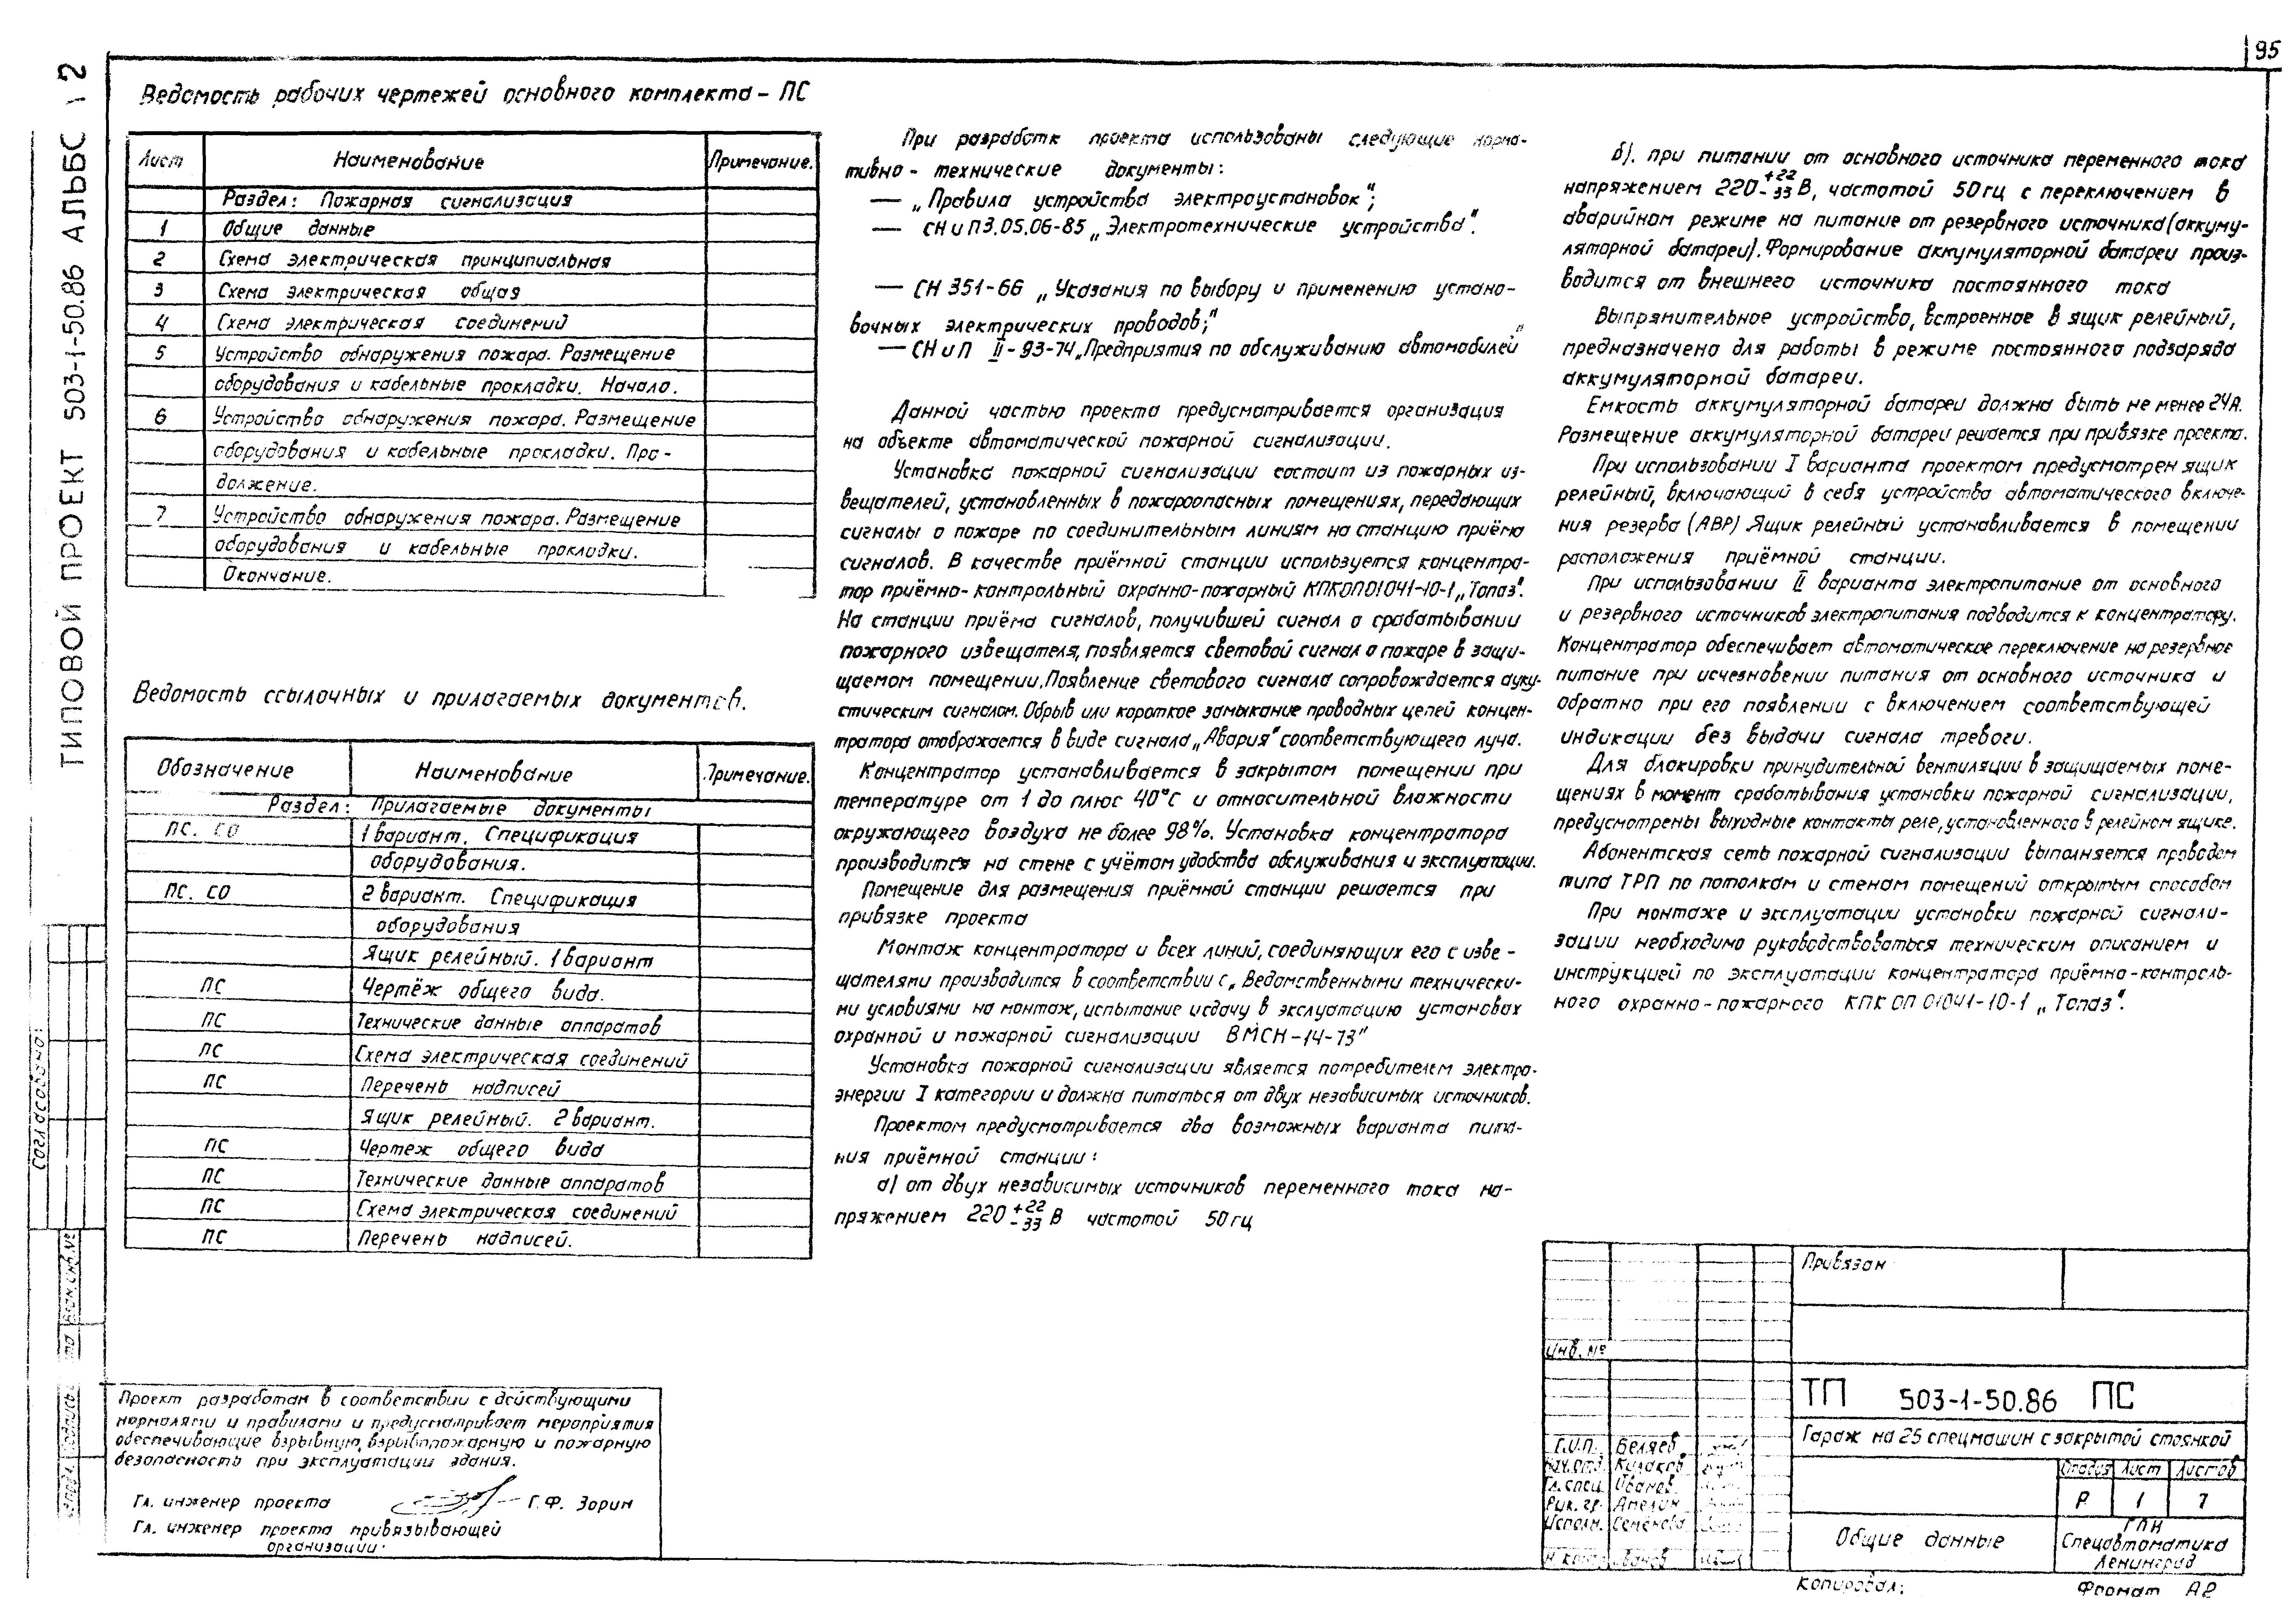 95
ТИПОВОЙ ПРОЕКТ 503-1-50.86 АЛЬБС 2
Ведомость рабочих чертежей основного комплекта – ПС
Лист Наименование Примечание.
Раздел: Пожарная сигнализация
1 Общие данные
2 Схема электрическая принципиальная
3 Схема электрическая общая
4 Схема электрическая соединений
5 Устройство обнаружения пожара. Размещение
оборудования и кабельные прокладки. Начало.
6 Устройство обнаружения пожара. Размещение
оборудования и кабельные прокладки. Про-
должение.
7 Устройство обнаружения пожара. Размещение
оборудования и кабельные прокладки.
Окончание.
Ведомость ссылочных и прилагаемых документов.
Обозначение Наименование Примечание.
Раздел: Прилагаемые документы
ПС. СО 1 вариант. Спецификация
оборудования.
ПС. СО 2 вариант. Спецификация
оборудования
Ящик релейный. 1 вариант
ПС Чертёж общего вида.
ПС Технические данные аппаратов
ПС Схема электрическая соединений
ПС Перечень надписей
Ящик релейный. 2 вариант.
ПС Чертеж общего вида
ПС Технические данные аппаратов
ПС Схема электрическая соединений
ПС Перечень надписей.
Проект разработан в соответствии с действующими
нормалями и правилами и предусматривает мероприятия
обеспечивающие взрывную, взрывопожарную и пожарную
безопасность при эксплуатации здания.
Гл. инженер проекта Г.Ф. Зорин
Гл. инженер проекта привязывающей
организации:
При разработк проекта использованы следующие норма-
тивно - технические документы:
— „Правила устройства электроустановок";
— СНиП3.05.06-85 „Электротехнические устройства".
— СН 351-66 „Указания по выбору и применению устано-
вочных электрических проводов;"
— СНиП II-93-74 „Предприятия по обслуживанию автомобилей"
Данной частью проекта предусматривается организация
на объекте автоматической пожарной сигнализации.
Установка пожарной сигнализации состоит из пожарных из-
вещателей, установленных в пожароопасных помещениях, передающих
сигналы о пожаре по соединительным линиям на станцию приёма
сигналов. В качестве приёмной станции используется концентра-
тор приёмно-контрольный охранно-пожарный КПКОП01041-10-1 „Топаз".
На станции приёма сигналов, получившей сигнал о срабатывании
пожарного извещателя, появляется световой сигнал о пожаре в защи-
щаемом помещении. Появление светового сигнала сопровождается аку-
стическим сигналом. Обрыв или короткое замыкание проводных цепей концен-
тратора отображается в виде сигнала „Авария" соответствующего луча.
Концентратор устанавливается в закрытом помещении при
температуре от 1 до плюс 40°С и относительной влажности
окружающего воздуха не более 98%. Установка концентратора
производится на стене с учётом удобства обслуживания и эксплуатации.
Помещение для размещения приёмной станции решается при
привязке проекта
Монтаж концентратора и всех линий, соединяющих его с изве-
щателями производится в соответствии с „Ведомственными технически-
ми условиями на монтаж, испытание и сдачу в эксплуатацию установок
охранной и пожарной сигнализации ВМСН-14-73"
Установка пожарной сигнализации является потребителем электро-
энергии I категории и должна питаться от двух независимых источников.
Проектом предусматривается два возможных варианта пита-
ния приёмной станции:
а) от двух независимых источников переменного тока на-
пряжением 220 +22 -33 В частотой 50 гц
б). при питании от основного источника переменного тока
напряжением 220 +22 -33 В, частотой 50 гц с переключением в
аварийном режиме на питание от резервного источника (аккуму-
ляторной батареи). Формирование аккумуляторной батареи произ-
водится от внешнего источника постоянного тока
Выпрямительное устройство, встроенное в ящик релейный,
предназначено для работы в режиме постоянного подзаряда
аккумуляторной батареи.
Емкость аккумуляторной батареи должна быть не менее 24А.
Размещение аккумуляторной батареи решается при привязке проекта.
При использовании I варианта проектом предусмотрен ящик
релейный, включающий в себя устройства автоматического включе-
ния резерва (АВР) Ящик релейный устанавливается в помещении
расположения приёмной станции.
При использовании II варианта электропитание от основного
и резервного источников электропитания подводится к концентратору.
Концентратор обеспечивает автоматическое переключение на резервное
питание при исчезновении питания от основного источника и
обратно при его появлении с включением соответствующей
индикации без выдачи сигнала тревоги.
Для блокировки принудительной вентиляции в защищаемых поме-
щениях в момент срабатывания установки пожарной сигнализации,
предусмотрены выходные контакты реле, установленного в релейном ящике.
Абонентская сеть пожарной сигнализации выполняется проводом
типа ТРП по потолкам и стенам помещений открытым способом
При монтаже и эксплуатации установки пожарной сигнали-
зации необходимо руководствоваться техническим описанием и
инструкцией по эксплуатации концентратора приёмно-контроль-
ного охранно-пожарного КПКОП 01041-10-1 „Топаз".
Согласовано:
Взам.инв.№
Привязан
инв. №
ТП 503-1-50.86 ПС
Гараж на 25 спецмашин с закрытой стоянкой
Стадия Лист Листов
Р 1 7
Г.И.П. Беляев
Нач.отд. Кулаков
Гл. спец. Иванов
Рук. гр. Амелин
Исполн. Семенова
Н. контр. Иванов
Общие данные
ГПИ
Спецавтоматика
Ленинград
Копировал:
Формат А2